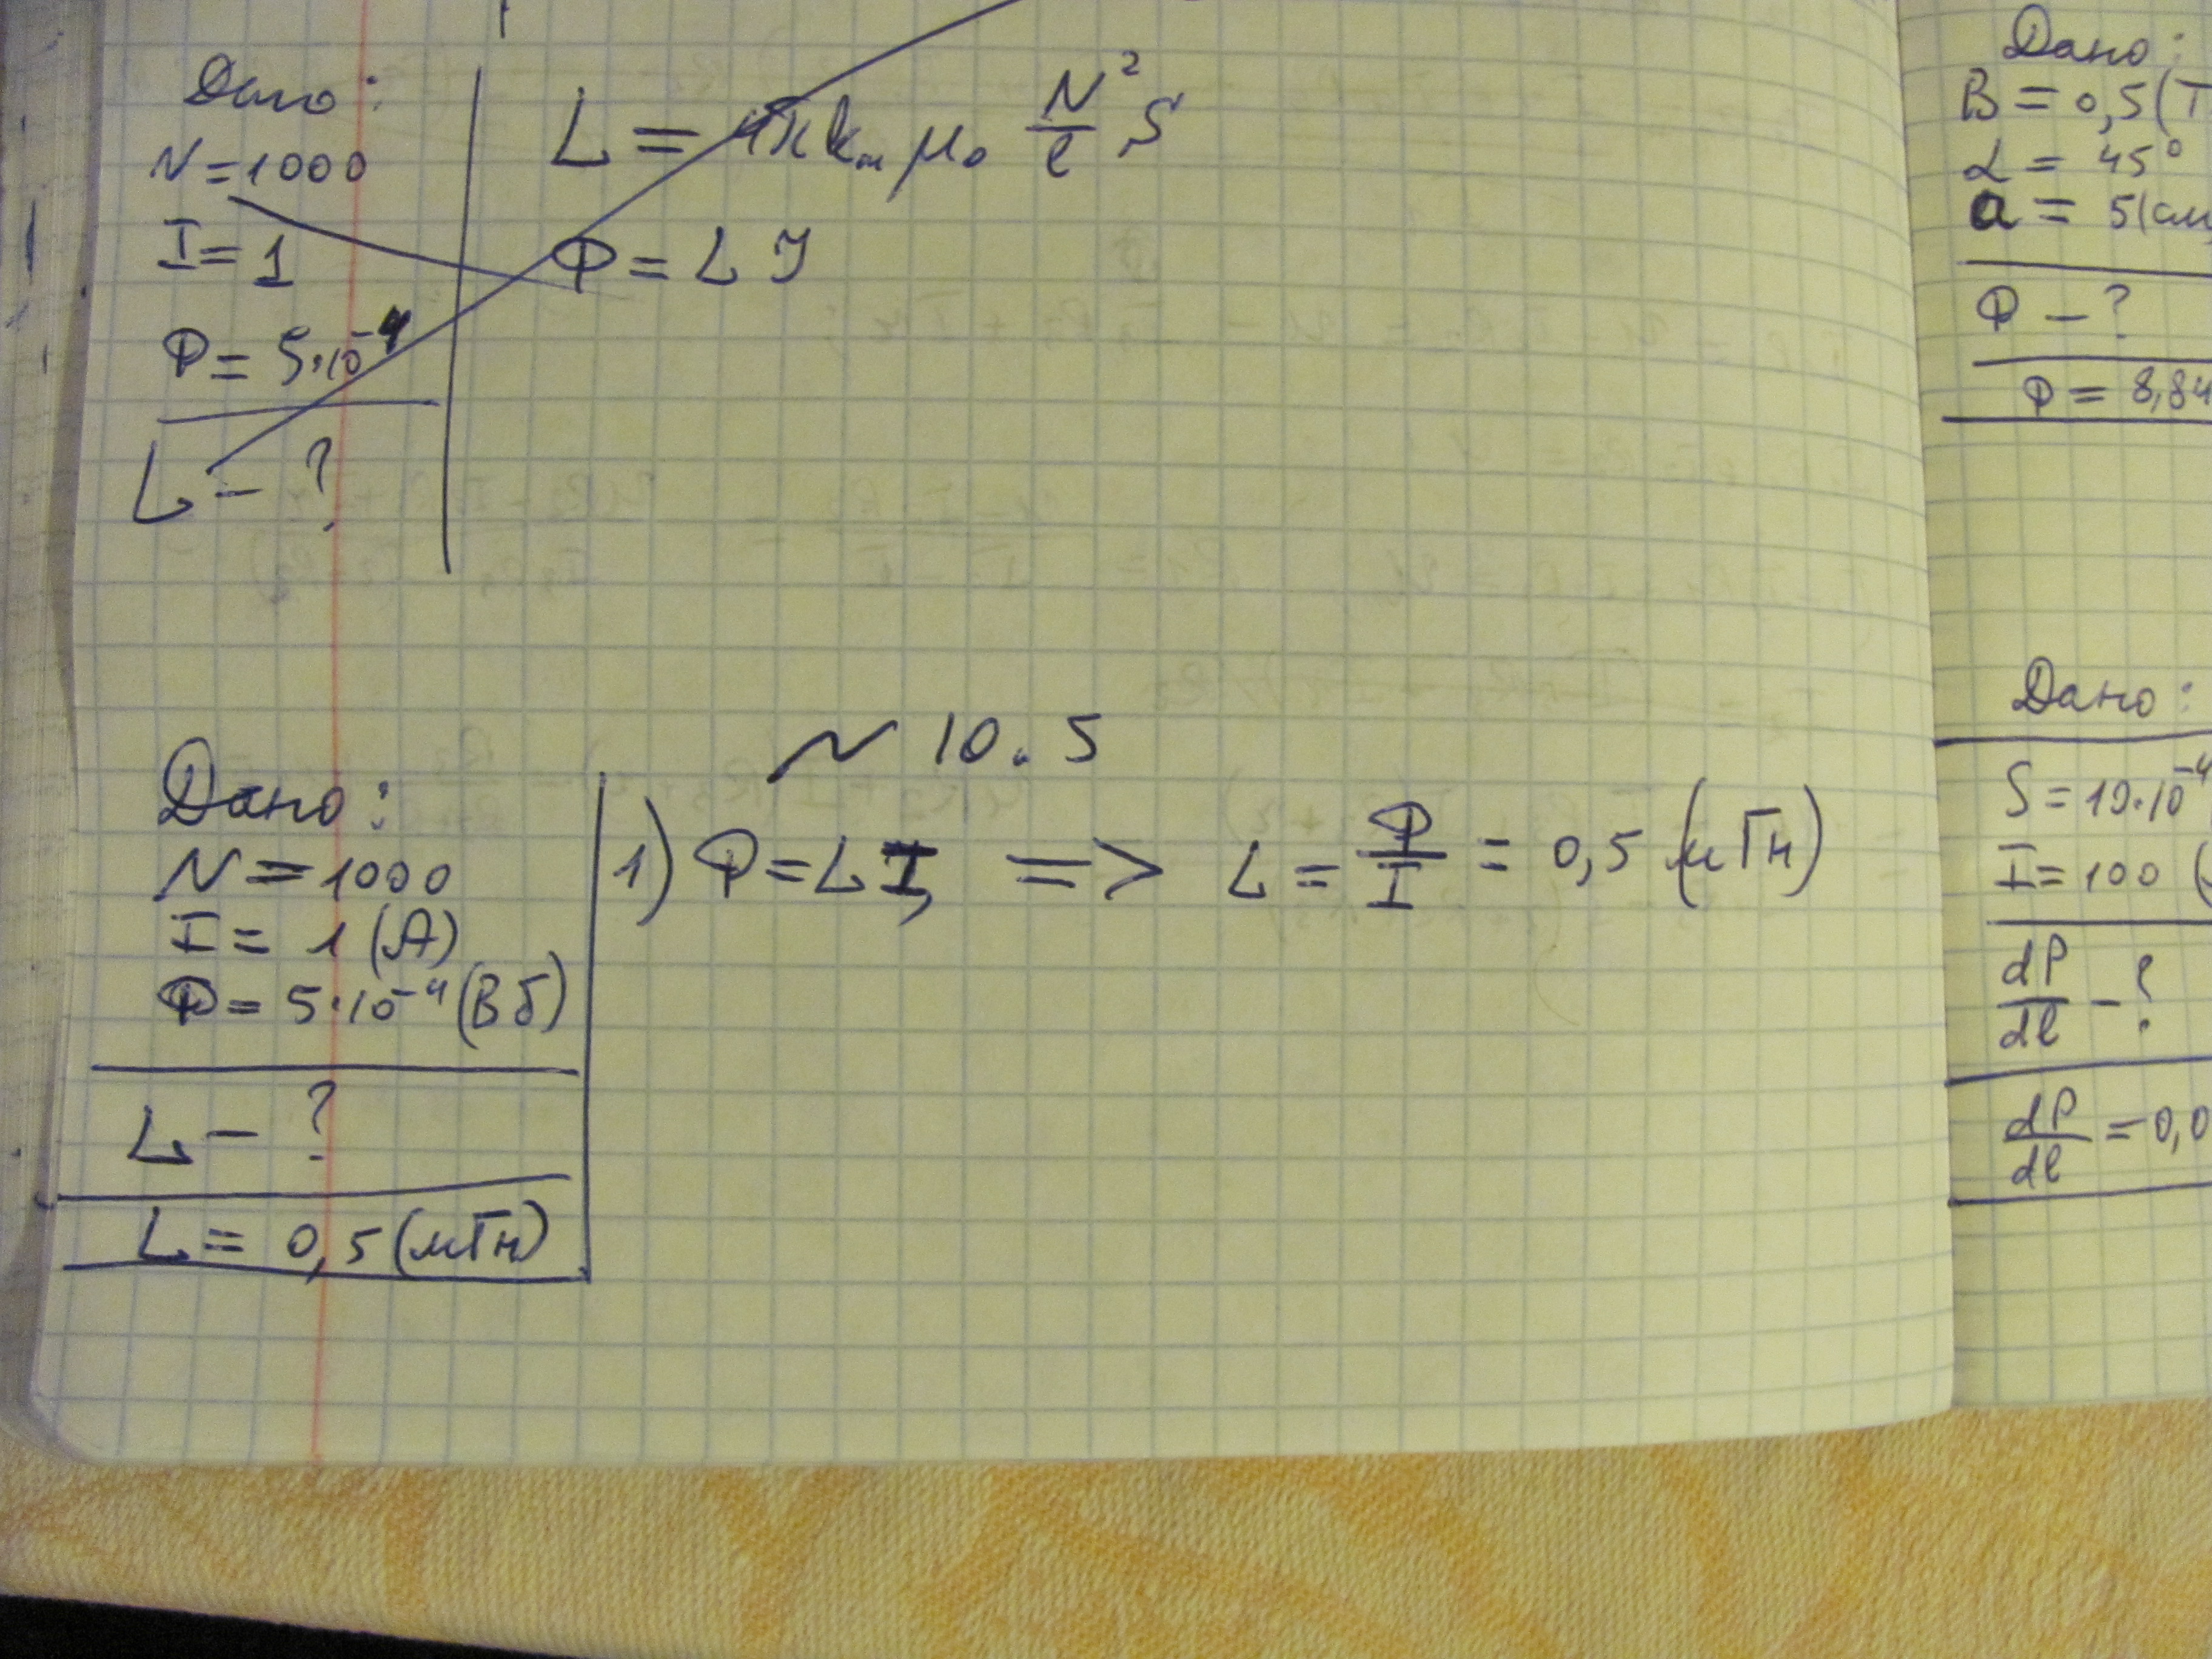 Дано:
N = 1000
I = 1
Φ = 5·10⁻⁴
L - ?
L = 4πkₘ μ₀ N²/ℓ S
Φ = L I
N 10.5
Дано:
N = 1000
I = 1 (A)
Φ = 5·10⁻⁴ (Вб)
L - ?
L = 0,5 (мГн)
1) Φ = LI, => L = Φ/I = 0,5 (мГн)
Дано:
B = 0,5 (Т
α = 45°
a = 5 (см
Φ - ?
Φ = 8,84
Дано:
S = 19·10⁻⁴
I = 100 (
dP/dℓ - ?
dP/dℓ = 0,0